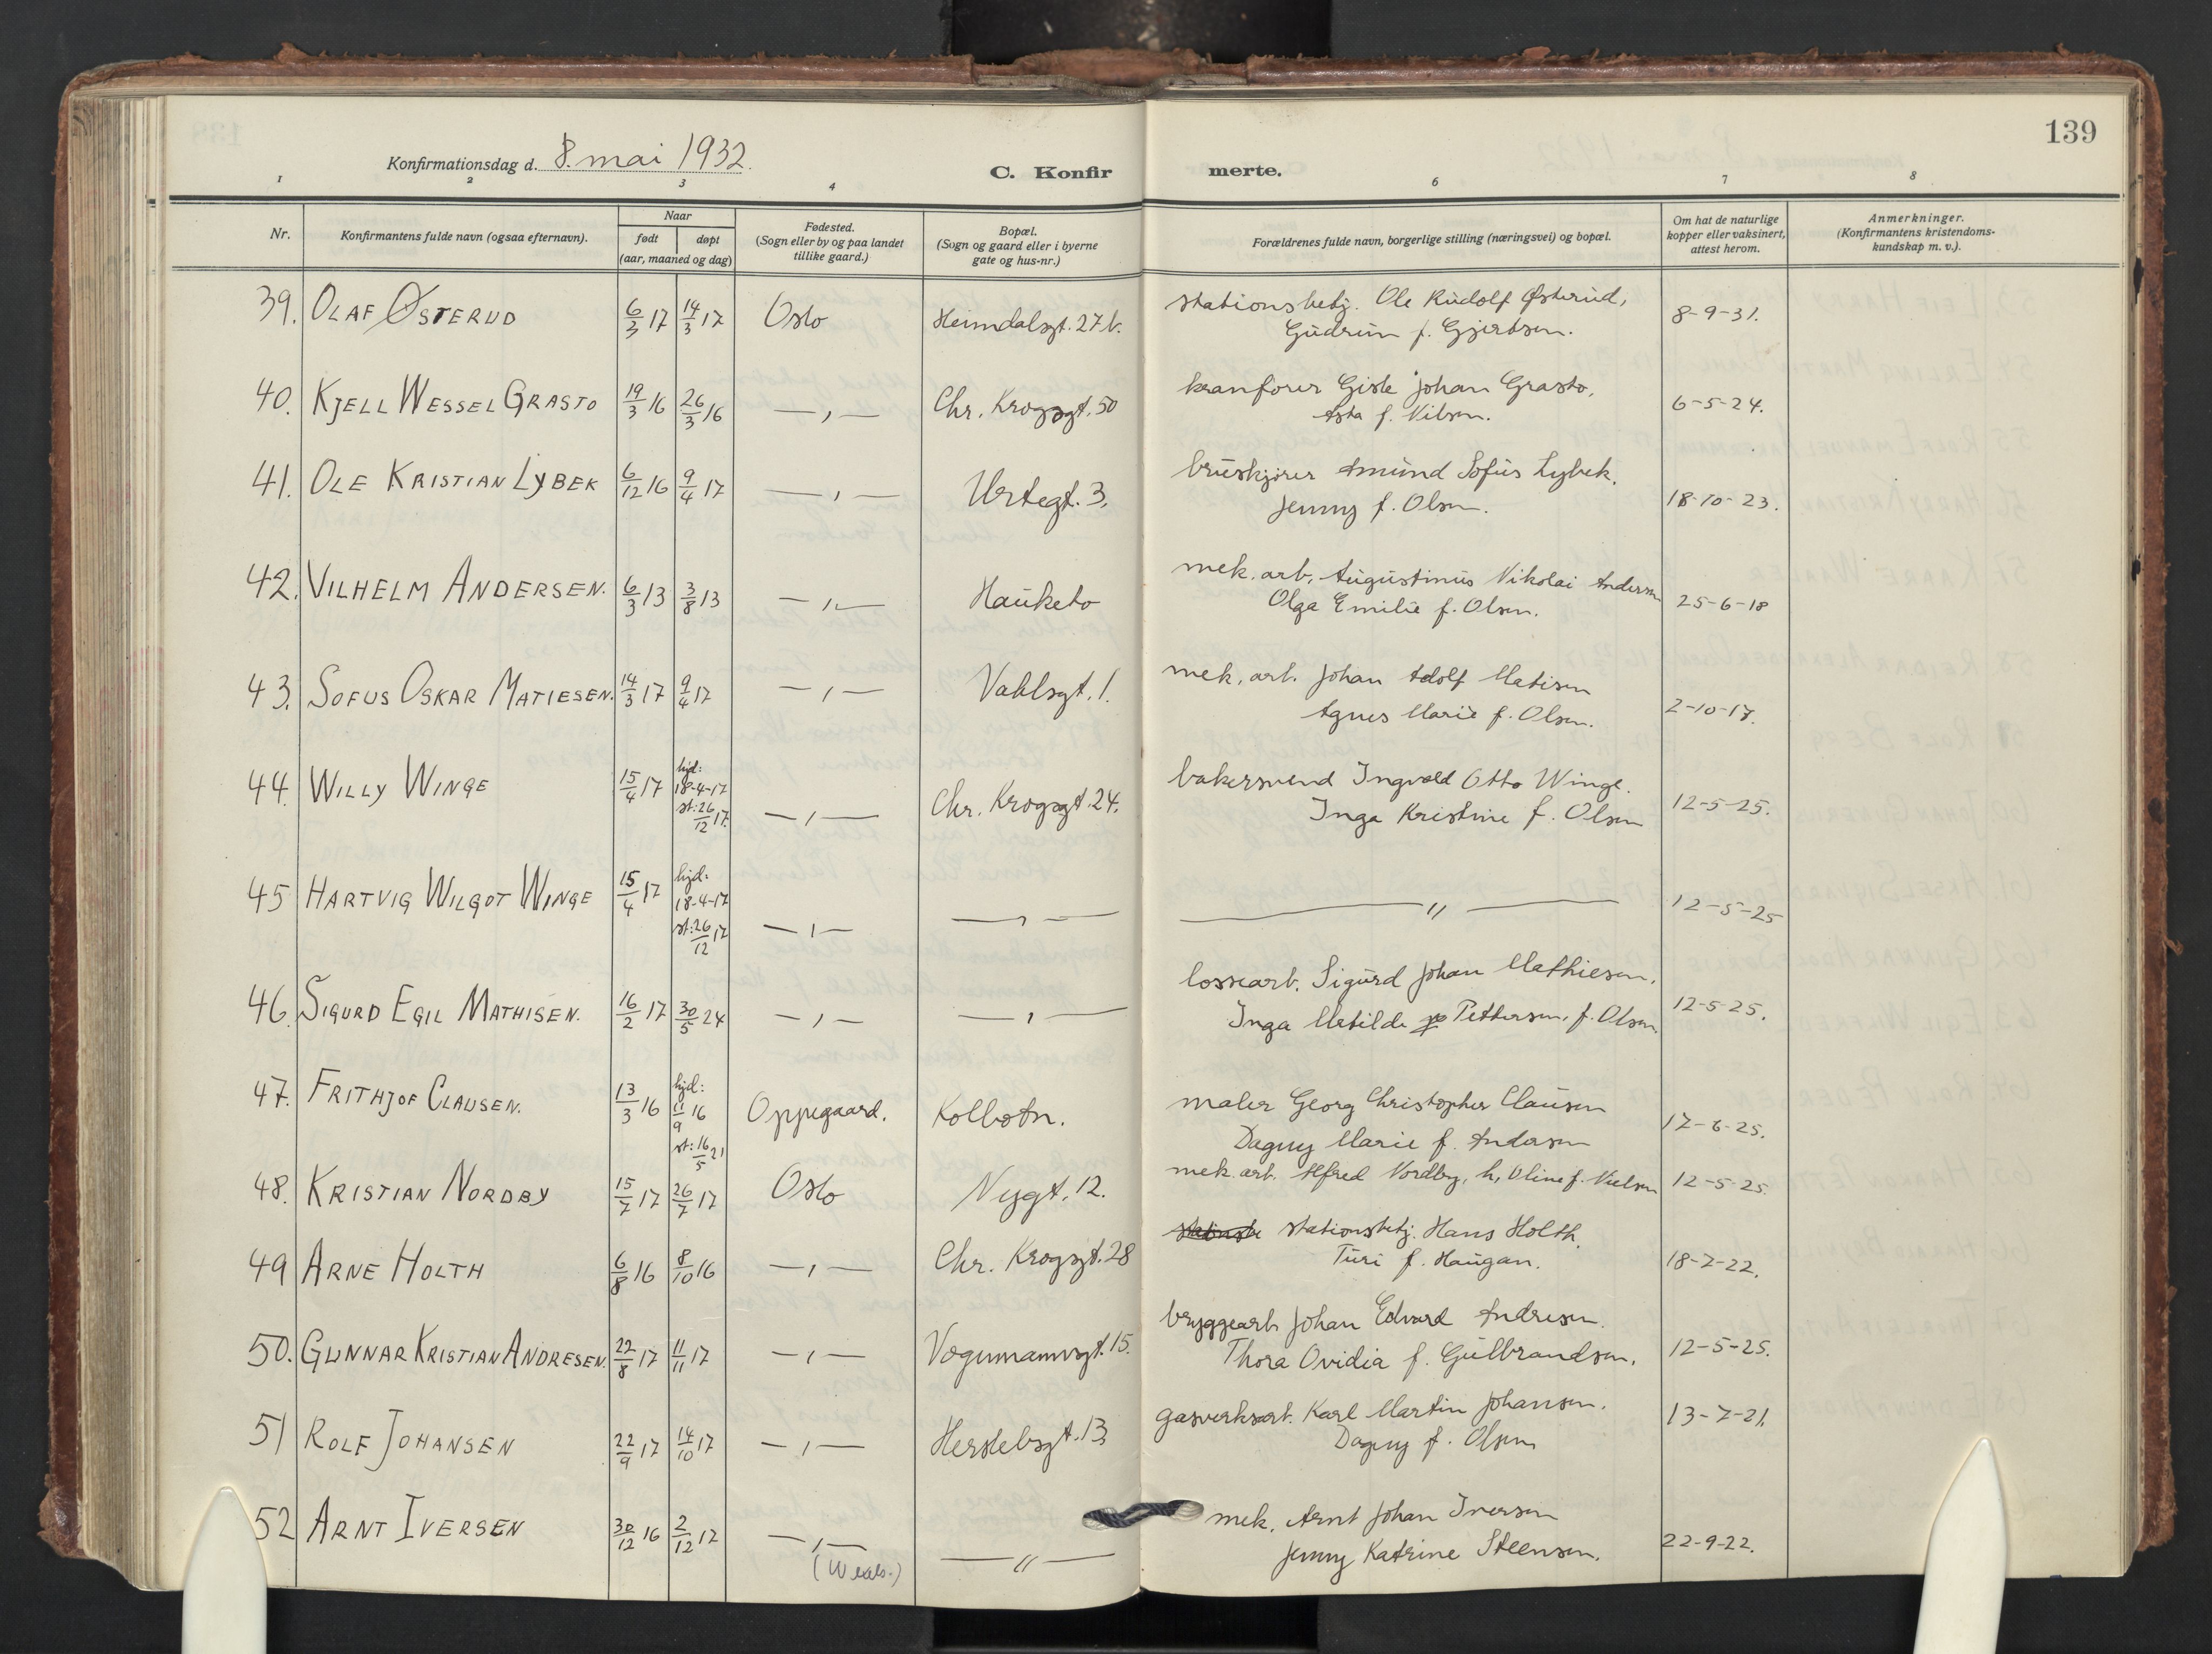 139
Konfirmationsdag d. 8. mai 1932.
C. Konfir
merte.
1 2 3 4 6 7 8
Nr.
Konfirmantens fulde navn (ogsaa efternavn).
Naar
født døpt
(aar, maaned og dag)
Fødested.
(Sogn eller by og paa landet
tillike gaard.)
Bopæl.
(Sogn og gaard eller i byerne
gate og hus-nr.)
Forældrenes fulde navn, borgerlige stilling (næringsvei) og bopæl.
Om hat de naturlige
kopper eller vaksinert,
attest herom.
Anmerkninger.
(Konfirmantens kristendoms-
kundskap m. v.).
39. OLAF ØSTERUD 6/3 17 14/3 17 Oslo Heimdalsgt. 27 b. stationsbetj. Ole Rudolf Østerud, 8-9-31.
Gudrun f. Gjertsen.
40. KJELL WESSEL GRASTO 19/3 16 26/3 16 — , — Chr. Krogsgt. 50 kranfører Gisle Johan Grasto. 6-5-24.
Asta f. Nilsen.
41. OLE KRISTIAN LYBEK 6/12 16 9/4 17 — , — Urtegt. 3. bruskjører Amund Sofus Lybek. 18-10-23.
Jenny f. Olsen.
42. VILHELM ANDERSEN. 6/3 13 3/8 13 — , — Hauketo mek. arb. Augustinus Nikolai Andersen 25-6-18
Olga Emilie f. Olsen.
43. SOFUS OSKAR MATIESEN. 14/3 17 9/4 17 — , — Vahlsgt. 1. mek. arb. Johan Adolf Matisen 2-10-17.
Agnes Marie f. Olsen.
44. WILLY WINGE 15/4 17 hjd: 18-4-17 st: 26/12 17. — , — Chr. Krogsgt. 24. bakersvend Ingvald Otto Winge. 12-5-25.
Inga Kristine f. Olsen
45 HARTVIG WILGOT WINGE 15/4 17 hjd: 18-4-17 st: 26/12 17 — , — — , — — " — 12-5-25
46. SIGURD EGIL MATHISEN. 16/2 17 30/5 24 — , — — , — lossearb. Sigurd Johan Mathiesen. 12-5-25.
Inga Matilde Pettersen, f. Olsen.
47. FRITHJOF CLAUSEN. 13/3 16 hjd: 11/9 16 st: 16/5 21 Oppegaard. Kolbotn. maler Georg Christopher Clausen 17-6-25.
Dagny Marie f. Andersen
48. KRISTIAN NORDBY 15/7 17 26/7 17 Oslo Nygt. 12. mek. arb. Alfred Nordby, h. Oline f. Nielsen 12-5-25.
49 ARNE HOLTH 6/8 16 8/10 16 — , — Chr. Krogsgt. 28 stationsbetj. Hans Holth. 18-7-22.
Turi f. Haugan.
50. GUNNAR KRISTIAN ANDRESEN. 22/8 17 11/11 17 — , — Vognmannsgt. 15. bryggearb. Johan Edvard Andresen. 12-5-25.
Thora Ovidia f. Gulbrandsen.
51 ROLF JOHANSEN 22/9 17 14/10 17 — , — Herslebsgt. 13. gasverksarb. Karl Martin Johansen. 13-7-21.
Dagny f. Olsen
52 ARNT IVERSEN 30/12 16 2/12 17 — , — — " — mek. Arnt Johan Iversen 22-9-22.
Jenny Katrine Steensen.